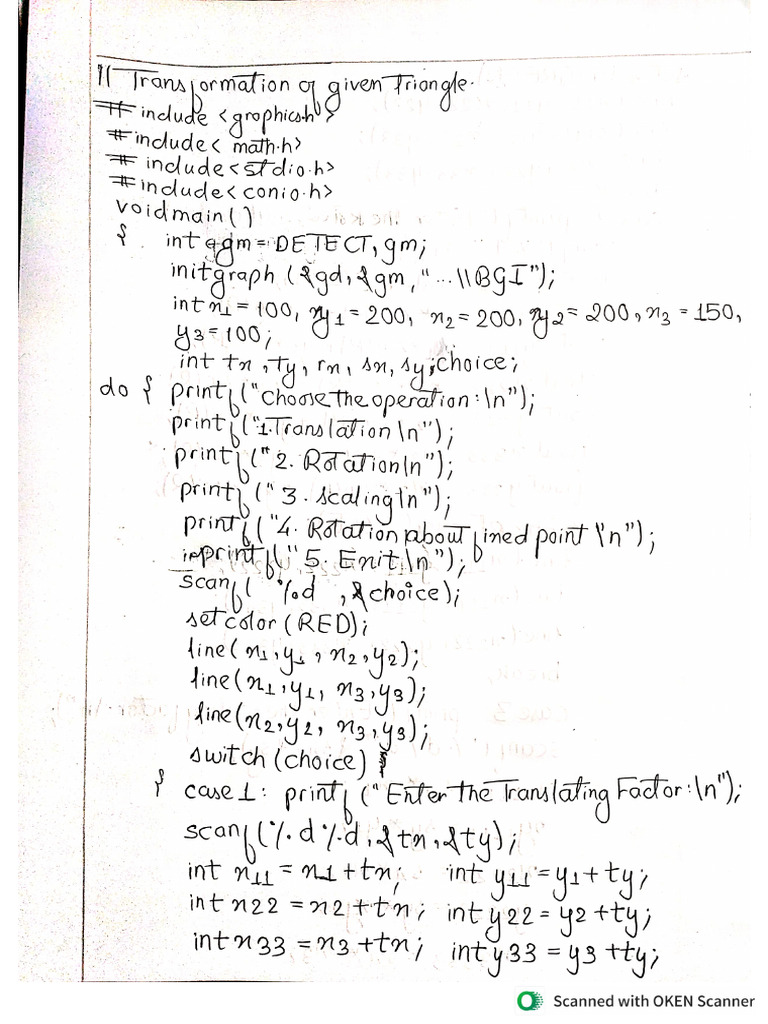 // Transformation of given triangle.
# include <graphics.h>
# include < math.h>
# include <stdio.h>
# include < conio.h>
void main()
{ int ggm = DETECT, gm;
initgraph (&gd, &gm, "...\\BGI");
int x1 = 100, y1 = 200, x2 = 200, y2 = 200, x3 = 150,
y3 = 100;
int tx, ty, rx, sx, sy; choice;
do { printf ("Choose the operation:\n");
printf ("1. Translation \n");
printf (" 2. Rotation \n");
printf (" 3. scaling \n");
printf ("4. Rotation about fixed point \n");
printf (" 5. Exit \n");
scanf ( %d , &choice);
setcolor (RED);
line (x1, y1, x2, y2);
line (x1, y1, x3, y3);
line (x2, y2, x3, y3);
switch (choice)
{ case 1: printf ("Enter the Translating Factor: \n");
scanf (%d %d, &tx, &ty);
int x11 = x1 + tx, int y11 = y1 + ty;
int x22 = x2 + tx; int y22 = y2 + ty;
int x33 = x3 + tx; int y33 = y3 + ty;
Scanned with OKEN Scanner